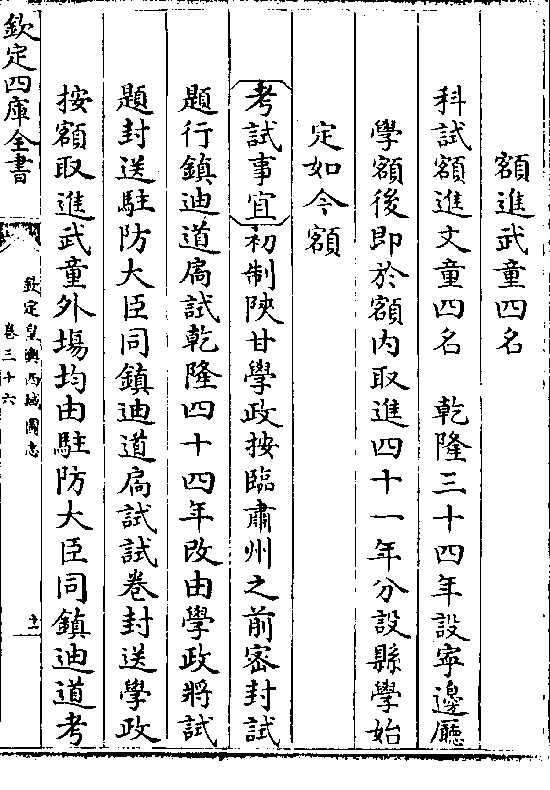 額進武童四名
科試額進文童四名　乾隆三十四年設寧邊廳
學額後即於額内取進四十一年分設縣學始
定如今額
考試事宜初制陜甘學政按臨肅州之前密封試
題行鎮迪道扃試乾隆四十四年改由學政將試
題封送駐防大臣同鎮迪道扃試試卷封送學政
按額取進武童外塲均由駐防大臣同鎮迪道考
欽定四庫全書
欽定皇輿西域圖志
卷三十六
十一